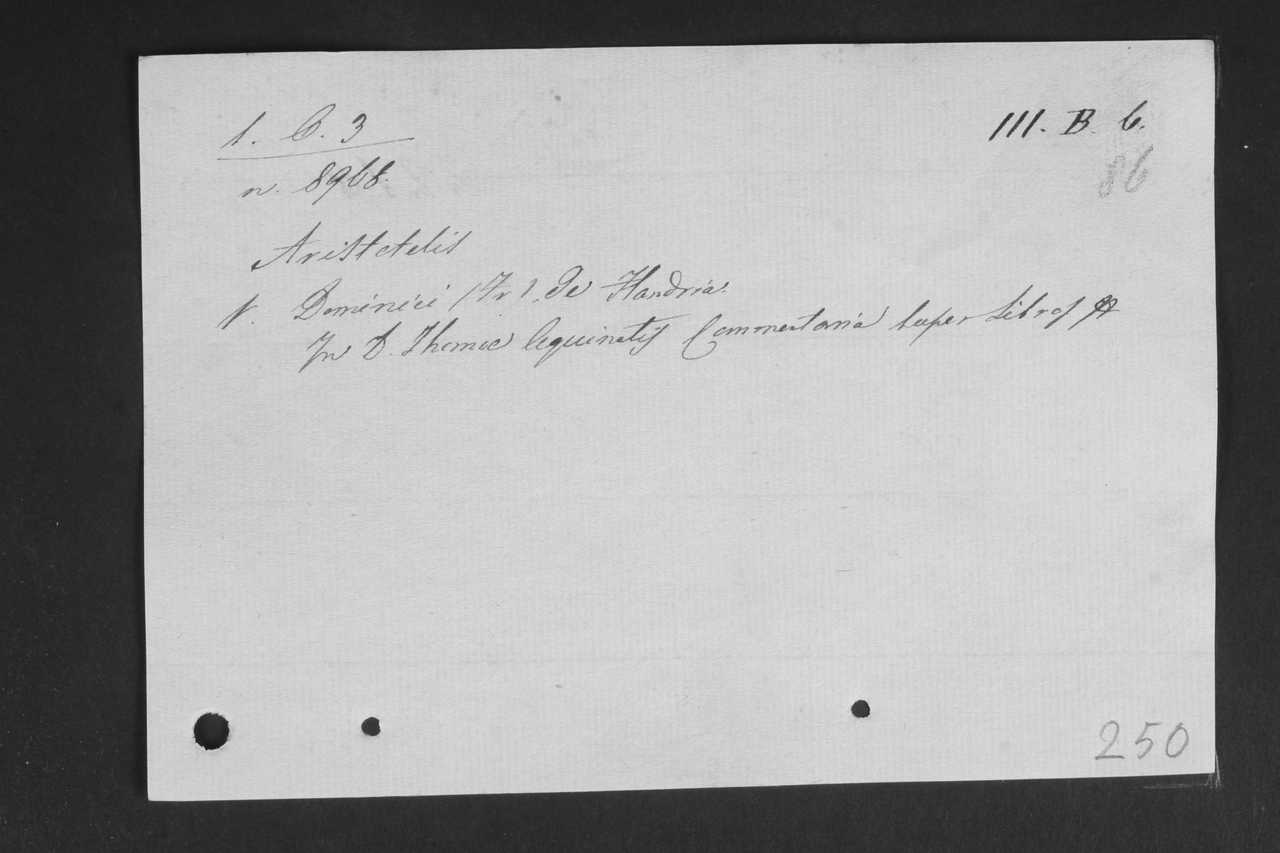 1. B. 3
III. B. 6.
6
n. 8968.
Aristotelis
V. Dominici (Fr). de Flandria.
In D. Thomae Aquinatis Commentaria super Libros
250